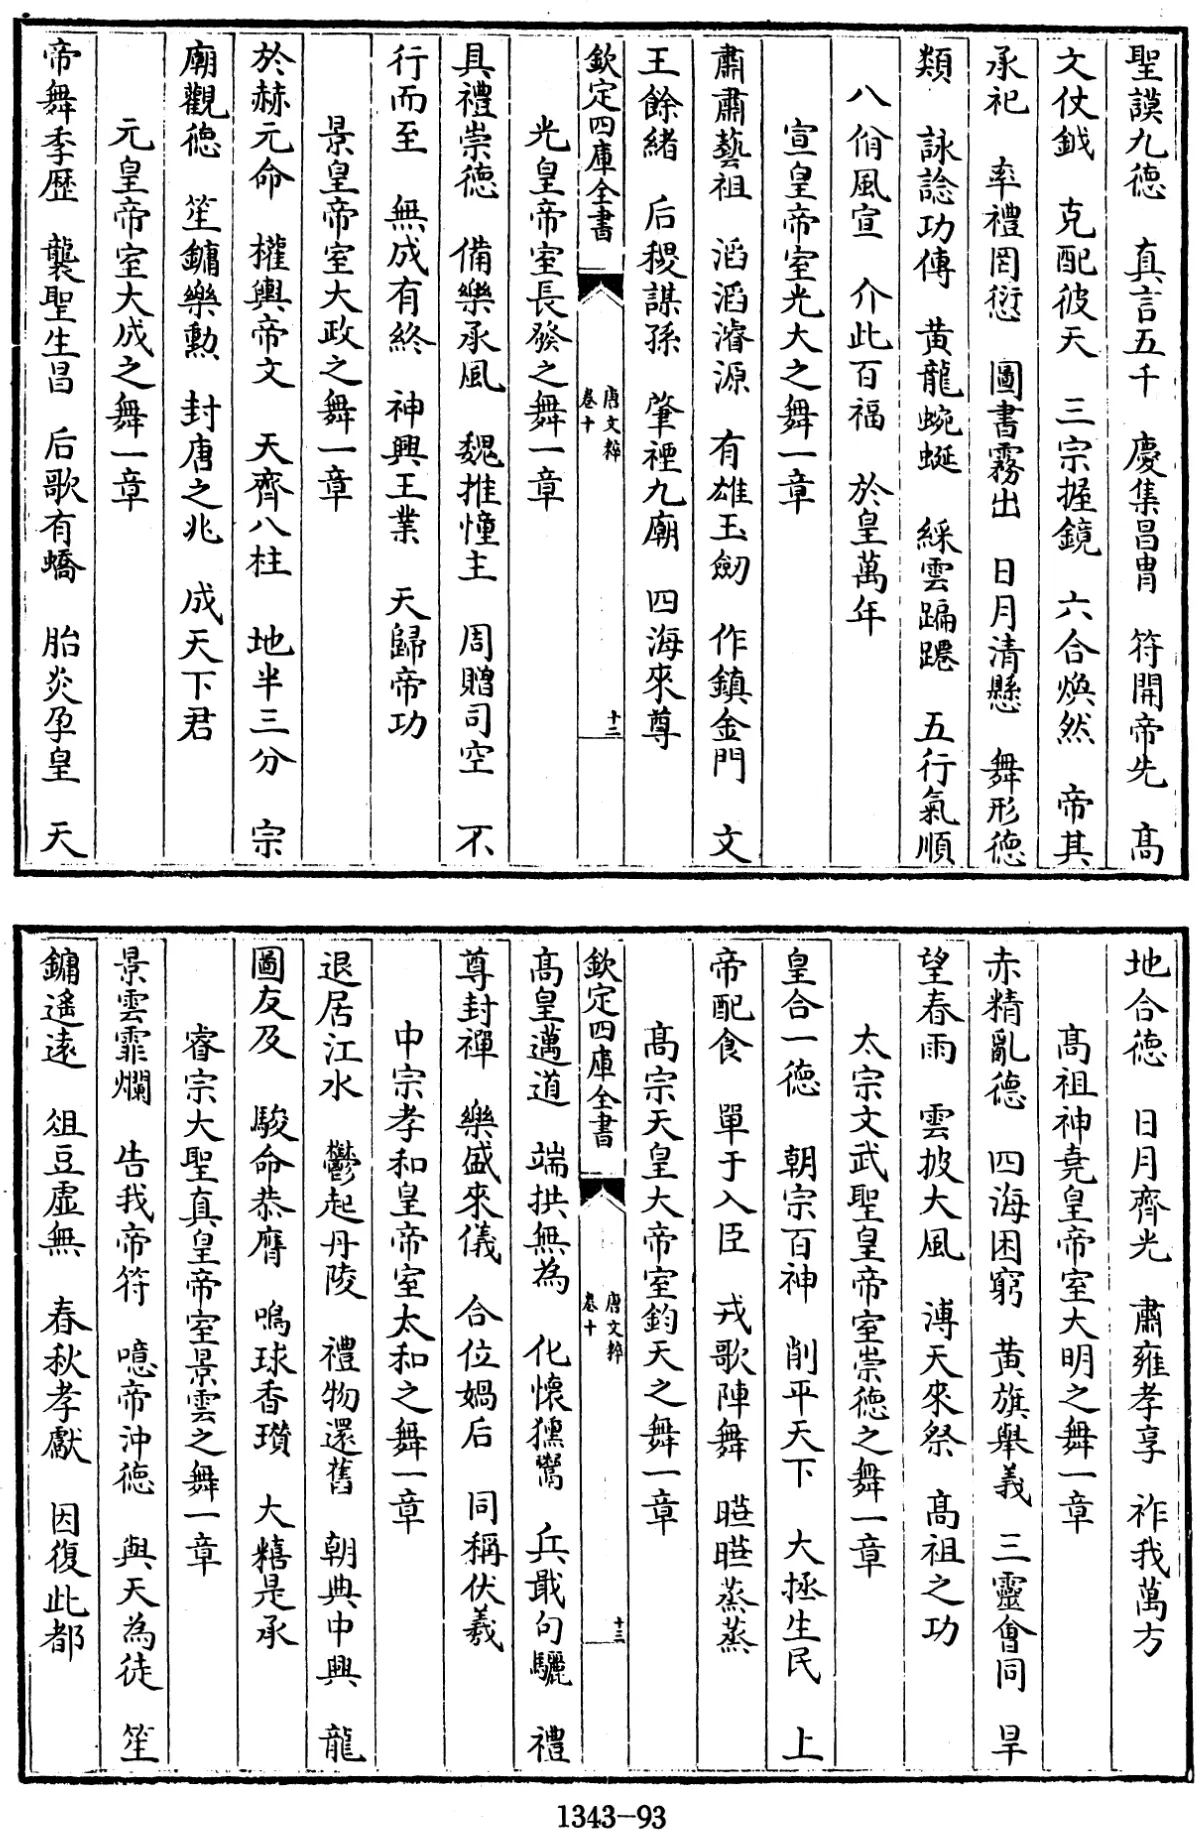 聖謨九德　真言五千　慶集昌胄　符開帝先　髙
文仗鉞　克配彼天　三宗握鏡　六合煥然　帝其
承祀　率禮罔愆　圖書霧出　日月清懸　舞形德
類　詠諗功傳　黄龍蜿蜒　綵雲蹁躚　五行氣順
八佾風宣　介此百福　於皇萬年
宣皇帝室光大之舞一章
肅肅藝祖　滔滔濬源　有雄玉劒　作鎮金門　文
王餘緒　后稷謀孫　肇禋九廟　四海來尊
欽定四庫全書
唐文粹
卷十
十二
光皇帝室長發之舞一章
具禮崇德　備樂承風　魏推幢主　周贈司空　不
行而至　無成有終　神興王業　天歸帝功
景皇帝室大政之舞一章
於赫元命　權輿帝文　天齊八柱　地半三分　宗
廟觀德　笙鏞樂勳　封唐之兆　成天下君
元皇帝室大成之舞一章
帝舞季歴　襲聖生昌　后歌有蟜　胎炎孕皇　天
地合德　日月齊光　肅雍孝享　祚我萬方
髙祖神堯皇帝室大明之舞一章
赤精亂德　四海困窮　黄旗舉義　三靈會同　旱
望春雨　雲披大風　溥天來祭　髙祖之功
太宗文武聖皇帝室崇德之舞一章
皇合一德　朝宗百神　削平天下　大拯生民　上
帝配食　單于入臣　戎歌陣舞　曀曀蒸蒸
髙宗天皇大帝室鈞天之舞一章
欽定四庫全書
唐文粹
卷十
十三
髙皇邁道　端拱無為　化懷獯鬻　兵戢句驪　禮
尊封禪　樂盛來儀　合位媧后　同稱伏羲
中宗孝和皇帝室太和之舞一章
退居江水　鬱起丹陵　禮物還舊　朝典中興　龍
圖友及　駿命恭膺　鳴球香瓚　大糦是承
睿宗大聖真皇帝室景雲之舞一章
景雲霏爛　告我帝符　噫帝沖德　與天為徒　笙
鏞遙遠　俎豆虚無　春秋孝獻　因復此都
1343-93